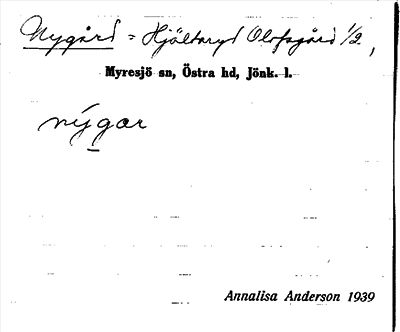 Nygård = Hjältaryd Olofsgård 1/2,
Myresjö sn, Östra hd, Jönk. l.
nýgar
Annalisa Anderson 1939